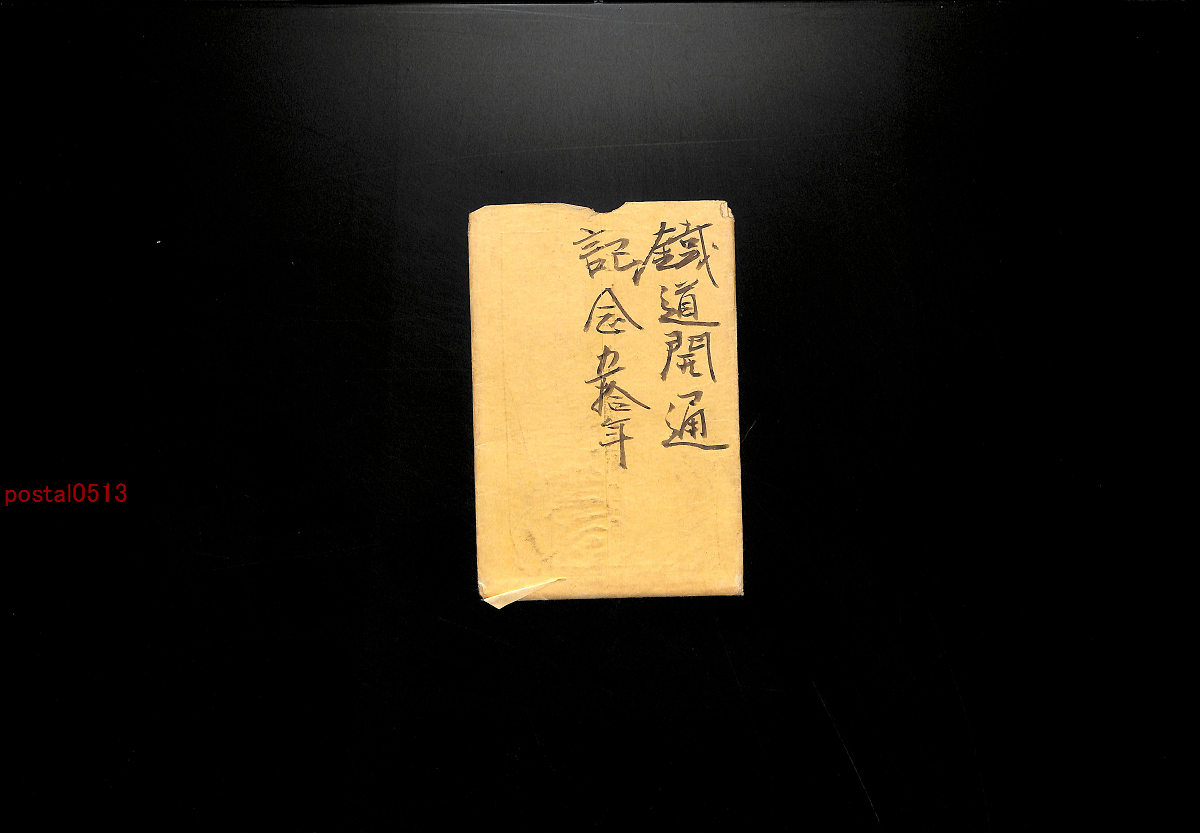 鐵道開通
記念五拾年
postal0513